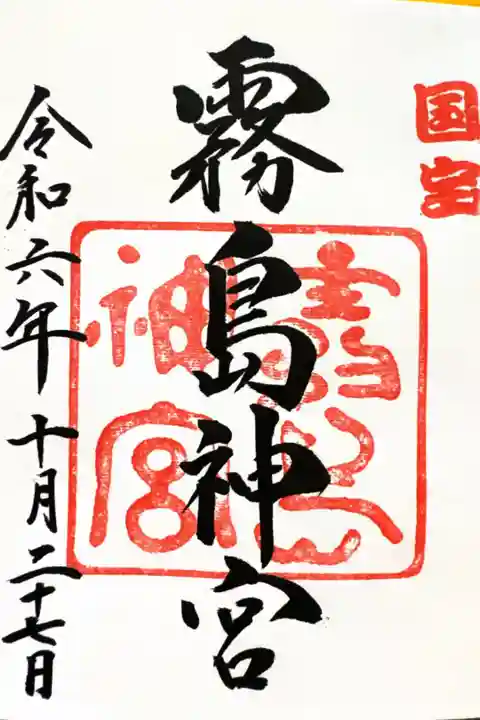 国宝
霧島神宮
令和六年十月二十七日